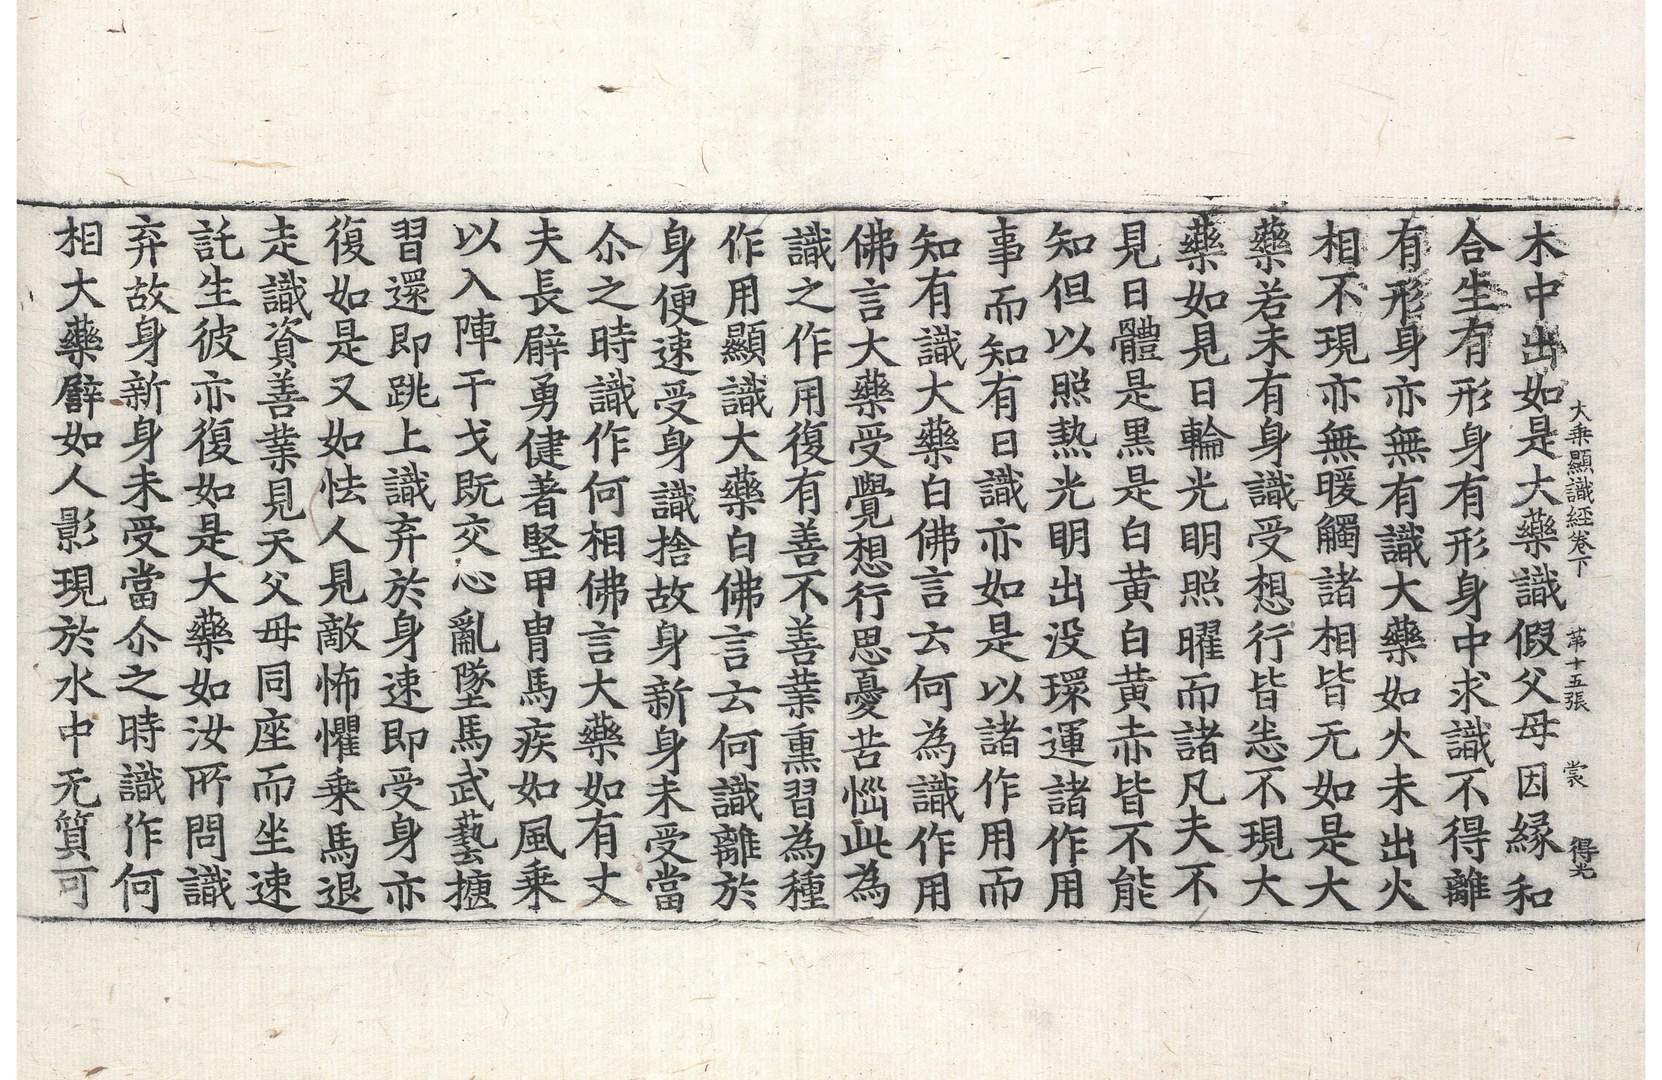 大乗顯識經卷下　第十五張　裳　得光
木中出如是大藥識假父母因縁和
合生有形身有形身中求識不得離
有形身亦無有識大藥如火未出火
相不現亦無暖觸諸相皆无如是大
藥若未有身識受想行皆悉不現大
藥如見日輪光明照曜而諸凡夫不
見日體是黒是白黄白黄赤皆不能
知但以照熱光明出没環運諸作用
事而知有日識亦如是以諸作用而
知有識大藥白佛言云何為識作用
佛言大藥受覺想行思憂苦惱此為
識之作用復有善不善業熏習為種
作用顯識大藥白佛言云何識離於
身便速受身識捨故身新身未受當
尒之時識作何相佛言大藥如有丈
夫長臂勇健著堅甲冑馬疾如風乗
以入陣干戈既交心亂墜馬武藝捷
習還即跳上識弃於身速即受身亦
復如是又如怯人見敵怖懼乗馬退
走識資善業見天父母同座而坐速
託生彼亦復如是大藥如汝所問識
弃故身新身未受當尒之時識作何
相大藥譬如人影現於水中无質可